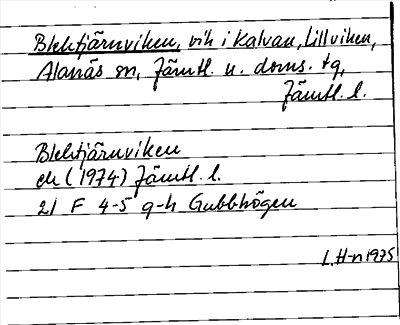 Blektjärnviken, vik i Kalvan, Lillviken,
Alanäs sn, Jämtl. n. doms. tg,
Jämtl. l.
Blektjärnviken
ek (1974) Jämtl. l.
21 F 4-5 g-h Gubbhögen
L. H-n 1975